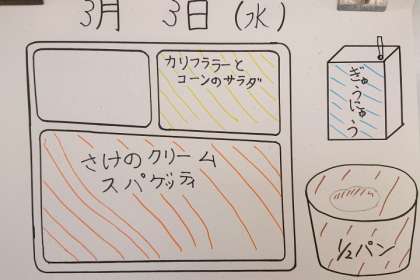 3月 3日 (水)
カリフラワーと
コーンのサラダ
ぎゅうにゅう
さけのクリーム
スパゲッティ
1/2パン